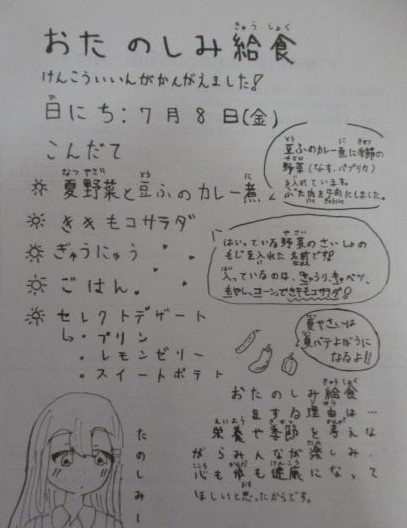 おたのしみ給食
きゅうしょく
けんこういいんがかんがえました!
日にち:7月8日(金)
こんだて
☼ 夏野菜と豆ふのカレー煮
なつやさい とう に
豆ふのカレー煮に季節の
野菜(なす、パプリカ)
を入れています。
ぶた肉を
にしました。
☼ きキもコサラダ
はいっている野菜のさいしょの
もじを入れた名前です!
入っているのは、きゅうり、キャベツ、
もやし、コーンで、きキもコサラダ!
☼ ぎゅうにゅう
☼ ごはん
☼ セレクトデザート
↳・プリン
・レモンゼリー
・スイートポテト
夏やさいは
夏バテよぼうに
なるよ!!
おたのしみ給食
をする理由は…
栄養や季節を考えな
がらみんなが楽しみ、
心も体も健康になって
ほしいと思ったからです。
たのしみー